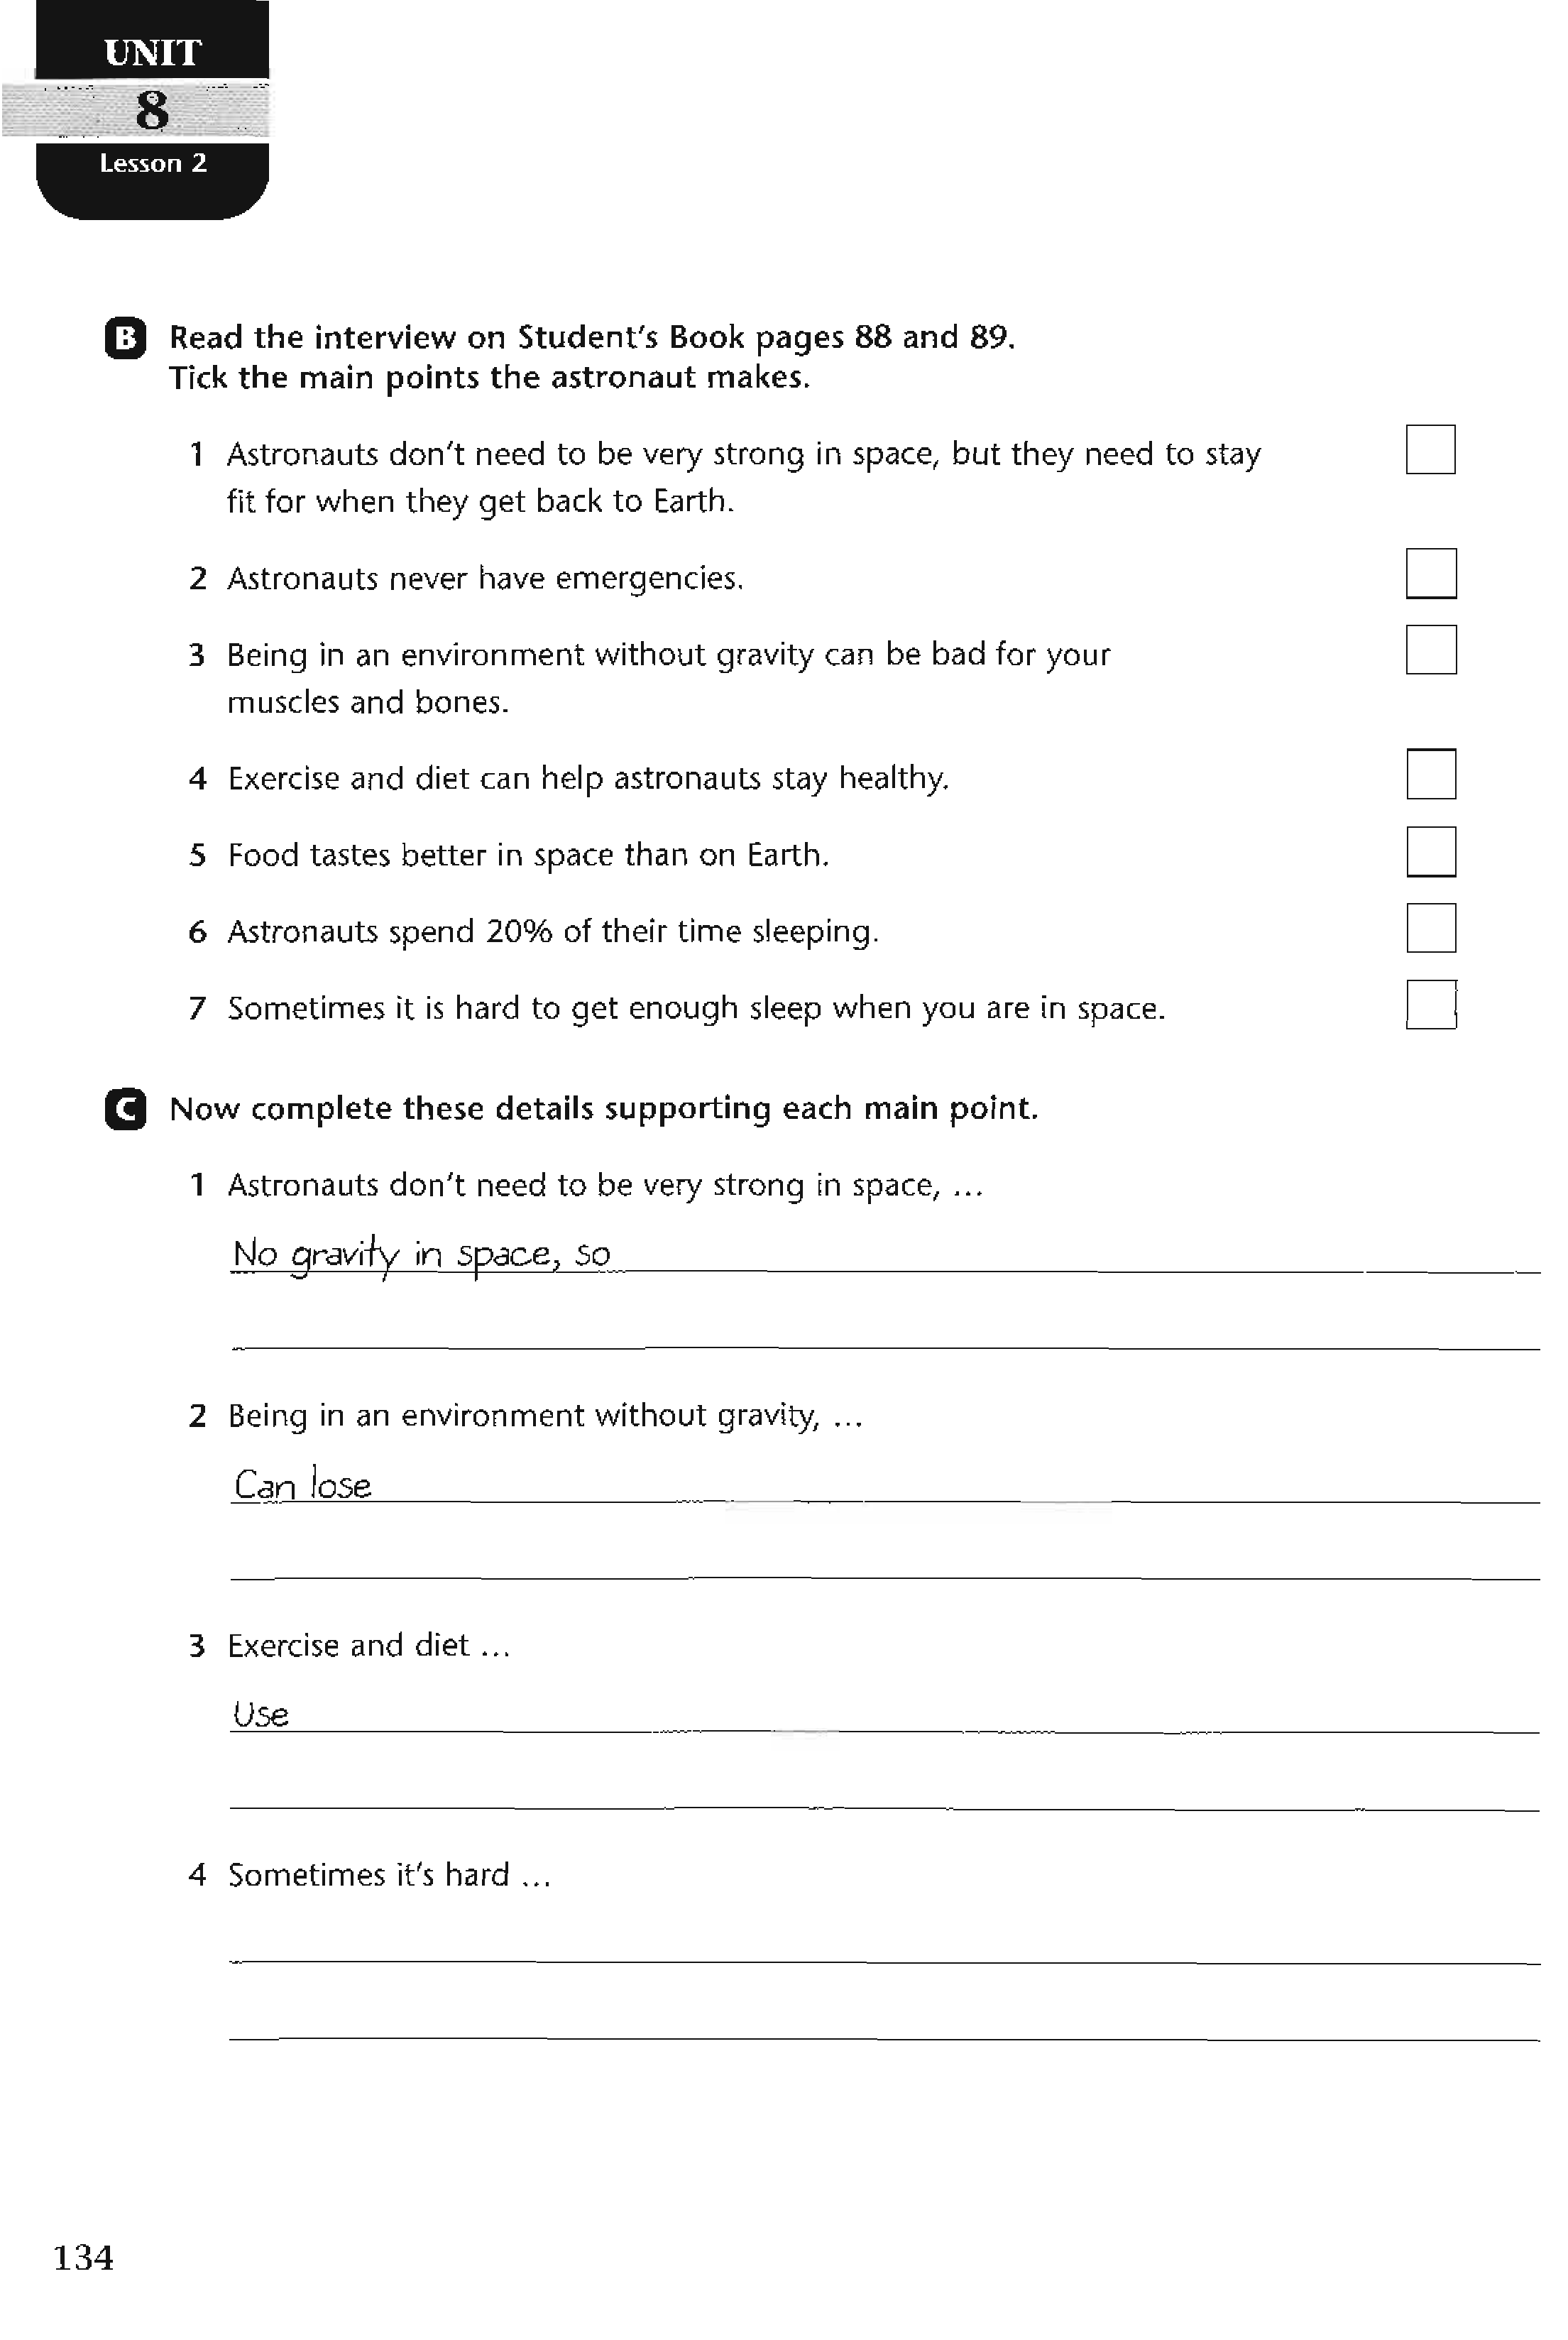 UNIT
8
Lesson 2
B Read the interview on Student's Book pages 88 and 89.
Tick the main points the astronaut makes.
1 Astronauts don't need to be very strong in space, but they need to stay
fit for when they get back to Earth.
2 Astronauts never have emergencies.
3 Being in an environment without gravity can be bad for your
muscles and bones.
4 Exercise and diet can help astronauts stay healthy.
5 Food tastes better in space than on Earth.
6 Astronauts spend 20% of their time sleeping.
7 Sometimes it is hard to get enough sleep when you are in space.
C Now complete these details supporting each main point.
1 Astronauts don't need to be very strong in space, ...
No gravity in space, so
2 Being in an environment without gravity, ...
Can lose
3 Exercise and diet ...
Use
4 Sometimes it's hard ...
134